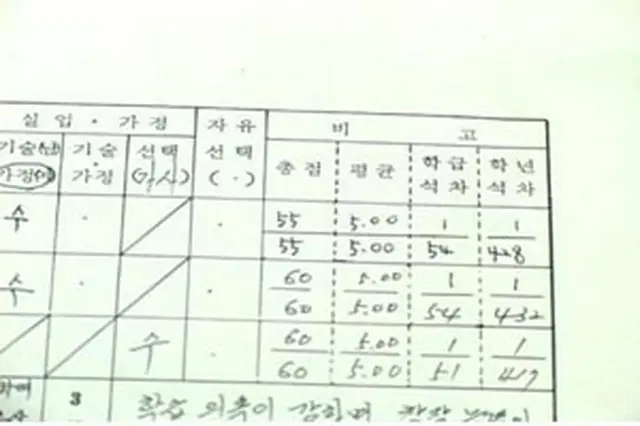 실업·가정 자유 비 고
기술(남) 기술 선택 선택 총점 평균 학급 학년
가정(여) ·가정 (가사) (·) 석차 석차
수 · · 55/55 5.00/5.00 1/54 1/428
수 · · 60/60 5.00/5.00 1/54 1/432
수 · 60/60 5.00/5.00 1/51 1/417
3 학습 의욕이 강하며